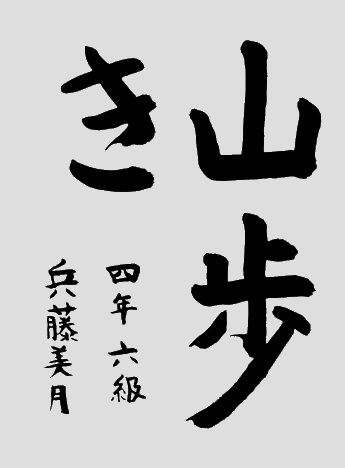 山歩
き
四年六級
兵藤美月